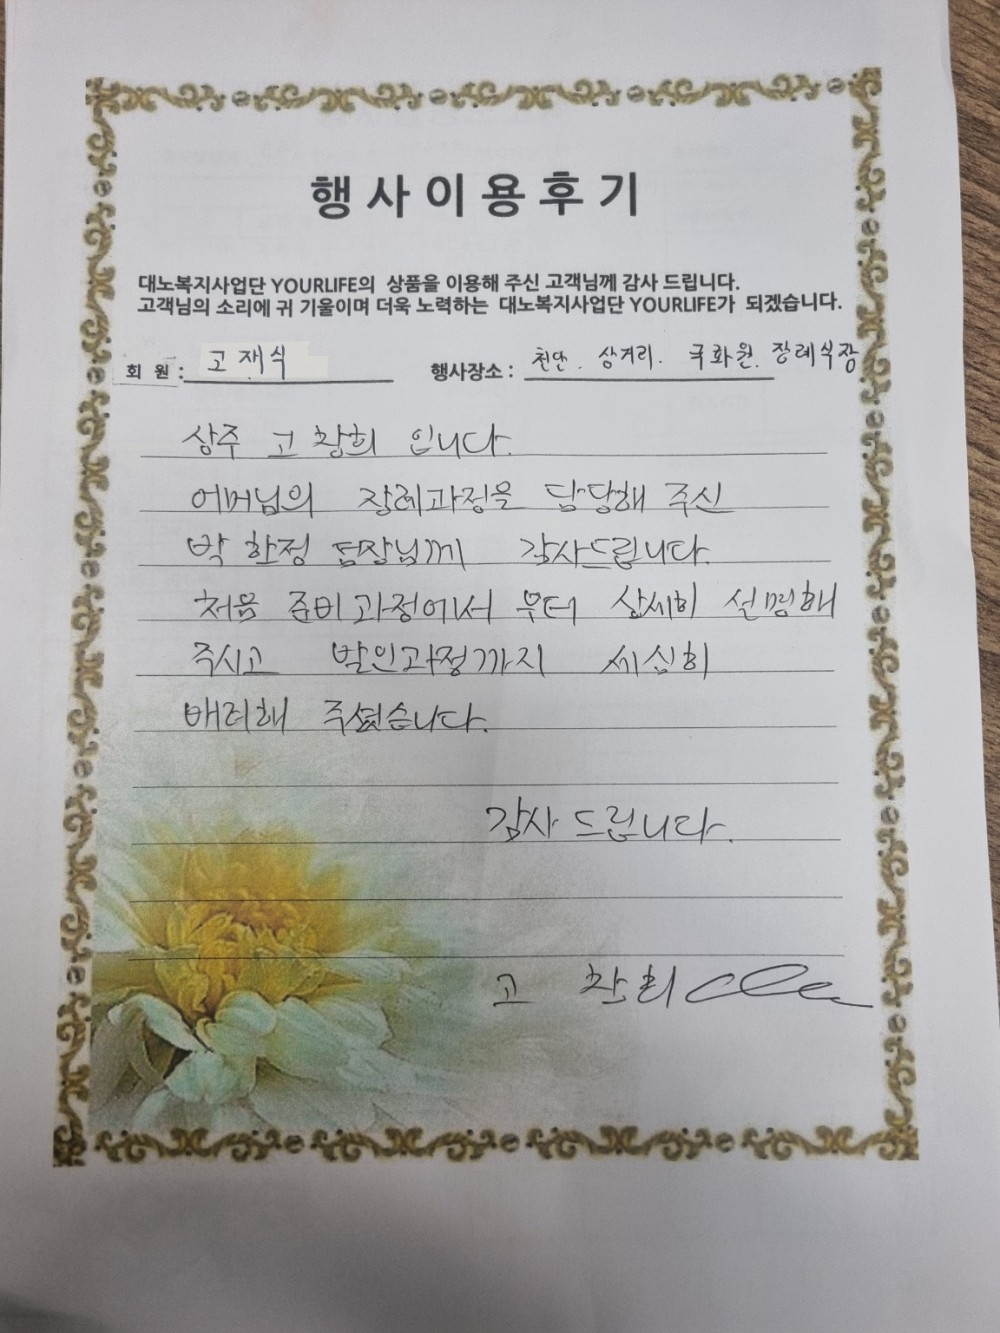 행사이용후기
대노복지사업단 YOURLIFE의 상품을 이용해 주신 고객님께 감사 드립니다.
고객님의 소리에 귀 기울이며 더욱 노력하는 대노복지사업단 YOURLIFE가 되겠습니다.
회 원 : 고재식 행사장소 : 천안. 삼거리. 국화원. 장례식장
상주 고창희 입니다.
어머님의 장례과정을 담당해 주신
박한정 팀장님께 감사드립니다.
처음 준비과정에서 부터 상세히 설명해
주시고 발인과정까지 세심히
배려해 주셨습니다.
감사 드립니다.
고 창희